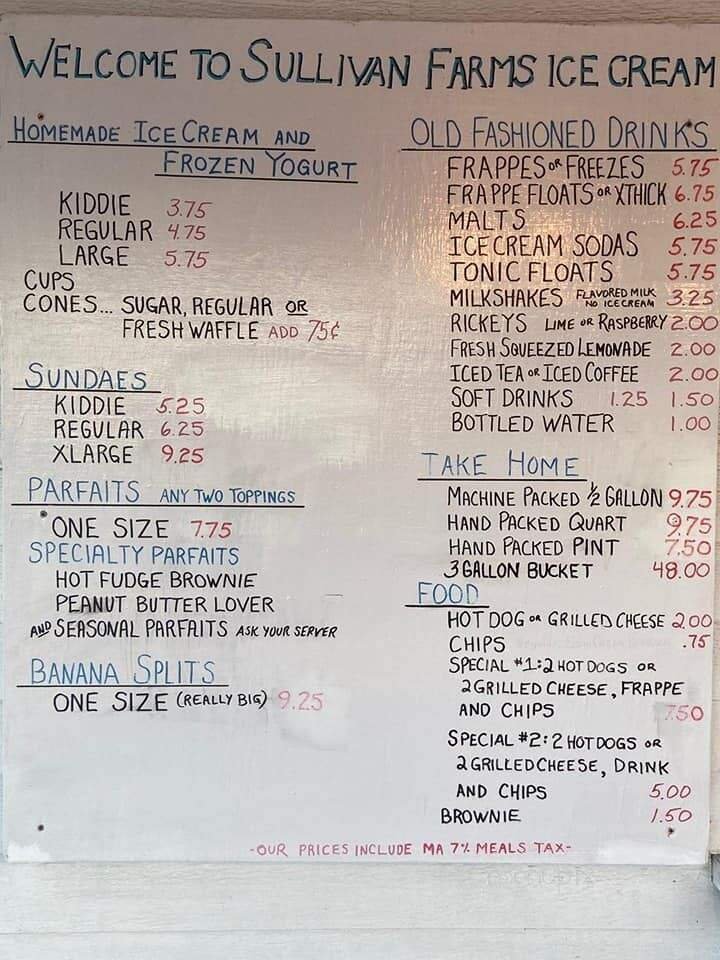 WELCOME TO SULLIVAN FARMS ICE CREAM
HOMEMADE ICE CREAM AND
FROZEN YOGURT
KIDDIE 3.75
REGULAR 4.75
LARGE 5.75
CUPS
CONES... SUGAR, REGULAR OR
FRESH WAFFLE ADD 75¢
SUNDAES
KIDDIE 5.25
REGULAR 6.25
XLARGE 9.25
PARFAITS ANY TWO TOPPINGS
ONE SIZE 7.75
SPECIALTY PARFAITS
HOT FUDGE BROWNIE
PEANUT BUTTER LOVER
AND SEASONAL PARFAITS ASK YOUR SERVER
BANANA SPLITS
ONE SIZE (REALLY BIG) 9.25
OLD FASHIONED DRINKS
FRAPPES OR FREEZES 5.75
FRAPPE FLOATS OR XTHICK 6.75
MALTS 6.25
ICE CREAM SODAS 5.75
TONIC FLOATS 5.75
MILKSHAKES FLAVORED MILK NO ICE CREAM 3.25
RICKEYS LIME OR RASPBERRY 2.00
FRESH SQUEEZED LEMONADE 2.00
ICED TEA OR ICED COFFEE 2.00
SOFT DRINKS 1.25 1.50
BOTTLED WATER 1.00
TAKE HOME
MACHINE PACKED ½ GALLON 9.75
HAND PACKED QUART 9.75
HAND PACKED PINT 7.50
3 GALLON BUCKET 48.00
FOOD
HOT DOG OR GRILLED CHEESE 2.00
CHIPS .75
SPECIAL #1: 2 HOT DOGS OR
2 GRILLED CHEESE, FRAPPE
AND CHIPS 7.50
SPECIAL #2: 2 HOT DOGS OR
2 GRILLED CHEESE, DRINK
AND CHIPS 5.00
BROWNIE 1.50
-OUR PRICES INCLUDE MA 7% MEALS TAX-